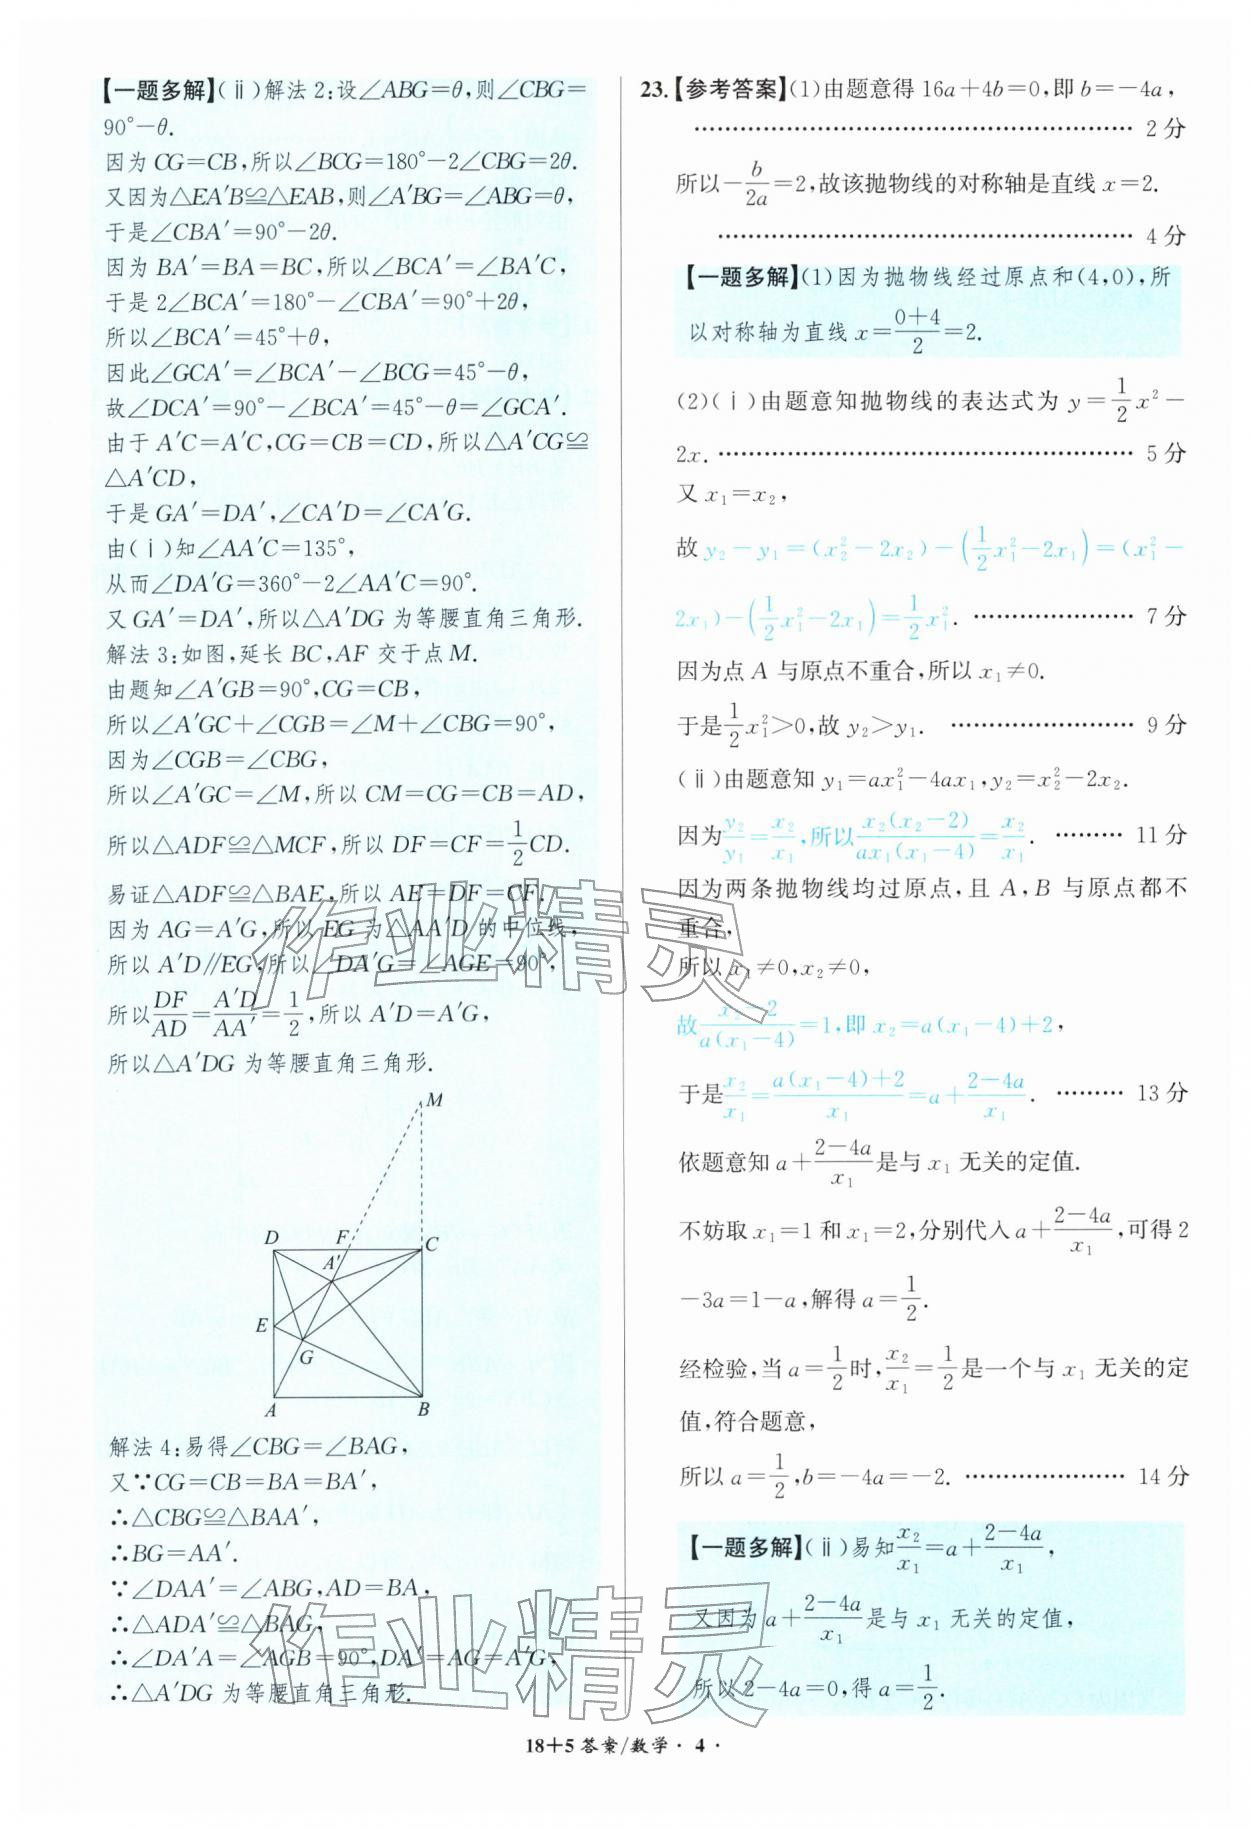 【一题多解】(ⅱ)解法2:设∠ABG=θ,则∠CBG=
90°-θ.
因为CG=CB,所以∠BCG=180°-2∠CBG=2θ.
又因为△EA′B≌△EAB,则∠A′BG=∠ABG=θ,
于是∠CBA′=90°-2θ.
因为BA′=BA=BC,所以∠BCA′=∠BA′C,
于是2∠BCA′=180°-∠CBA′=90°+2θ,
所以∠BCA′=45°+θ,
因此∠GCA′=∠BCA′-∠BCG=45°-θ,
故∠DCA′=90°-∠BCA′=45°-θ=∠GCA′.
由于A′C=A′C,CG=CB=CD,所以△A′CG≌
△A′CD,
于是GA′=DA′,∠CA′D=∠CA′G.
由(ⅰ)知∠AA′C=135°,
从而∠DA′G=360°-2∠AA′C=90°.
又GA′=DA′,所以△A′DG为等腰直角三角形.
解法3:如图,延长BC,AF交于点M.
由题知∠A′GB=90°,CG=CB,
所以∠A′GC+∠CGB=∠M+∠CBG=90°,
因为∠CGB=∠CBG,
所以∠A′GC=∠M,所以CM=CG=CB=AD,
所以△ADF≌△MCF,所以DF=CF=1/2CD.
易证△ADF≌△BAE,所以AE=DF=CF.
因为AG=A′G,所以EG为△AA′D的中位线,
所以A′D∥EG,所以∠DA′G=∠AGE=90°,
所以DF/AD=A′D/AA′=1/2,所以A′D=A′G,
所以△A′DG为等腰直角三角形.
M
D F C
A′
E
G
A B
解法4:易得∠CBG=∠BAG,
又∵CG=CB=BA=BA′,
∴△CBG≌△BAA′,
∴BG=AA′.
∵∠DAA′=∠ABG,AD=BA,
∴△ADA′≌△BAG,
∴∠DA′A=∠AGB=90°,DA′=AG=A′G,
∴△A′DG为等腰直角三角形.
23.【参考答案】(1)由题意得16a+4b=0,即b=-4a,
…………………………………………… 2分
所以-b/2a=2,故该抛物线的对称轴是直线x=2.
………………………………………… 4分
【一题多解】(1)因为抛物线经过原点和(4,0),所
以对称轴为直线x=(0+4)/2=2.
(2)(ⅰ)由题意知抛物线的表达式为y=1/2x²-
2x. ………………………………………… 5分
又x₁=x₂,
故y₂-y₁=(x₂²-2x₂)-(1/2x₁²-2x₁)=(x₁²-
2x₁)-(1/2x₁²-2x₁)=1/2x₁². ……………… 7分
因为点A与原点不重合,所以x₁≠0.
于是1/2x₁²>0,故y₂>y₁. ………………… 9分
(ⅱ)由题意知y₁=ax₁²-4ax₁,y₂=x₂²-2x₂.
因为y₂/y₁=x₂/x₁,所以x₂(x₂-2)/ax₁(x₁-4)=x₂/x₁. ……… 11分
因为两条抛物线均过原点,且A,B与原点都不
重合,
所以x₁≠0,x₂≠0,
故(x₂-2)/a(x₁-4)=1,即x₂=a(x₁-4)+2,
于是x₂/x₁=(a(x₁-4)+2)/x₁=a+(2-4a)/x₁. ……… 13分
依题意知a+(2-4a)/x₁是与x₁无关的定值.
不妨取x₁=1和x₁=2,分别代入a+(2-4a)/x₁,可得2
-3a=1-a,解得a=1/2.
经检验,当a=1/2时,x₂/x₁=1/2是一个与x₁无关的定
值,符合题意,
所以a=1/2,b=-4a=-2. ……………… 14分
【一题多解】(ⅱ)易知x₂/x₁=a+(2-4a)/x₁,
又因为a+(2-4a)/x₁是与x₁无关的定值,
所以2-4a=0,得a=1/2.
作业精灵
作业精灵
18+5答案/数学·4·